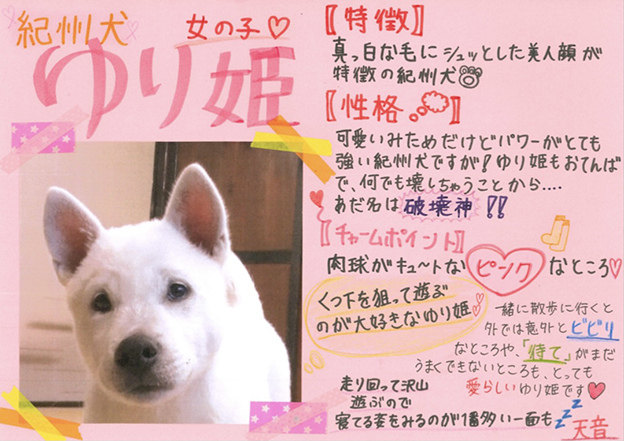 紀州犬
女の子♡
ゆり姫
【特徴】
真っ白な毛にシュッとした美人顔が
特徴の紀州犬
【性格】
可愛いみためだけどパワーがとても
強い紀州犬ですが!ゆり姫もおてんば
で、何でも壊しちゃうことから....
あだ名は破壊神!!
【チャームポイント】
肉球がキュ〜トなピンクなところ♡
くつ下を狙って遊ぶ
のが大好きなゆり姫
一緒に散歩に行くと
外では意外とビビリ
なところや、「待て」がまだ
うまくできないところも、とっても
愛らしいゆり姫です♥
走り回って沢山
遊ぶので
寝てる姿をみるのが1番多い一面も zzz
天音